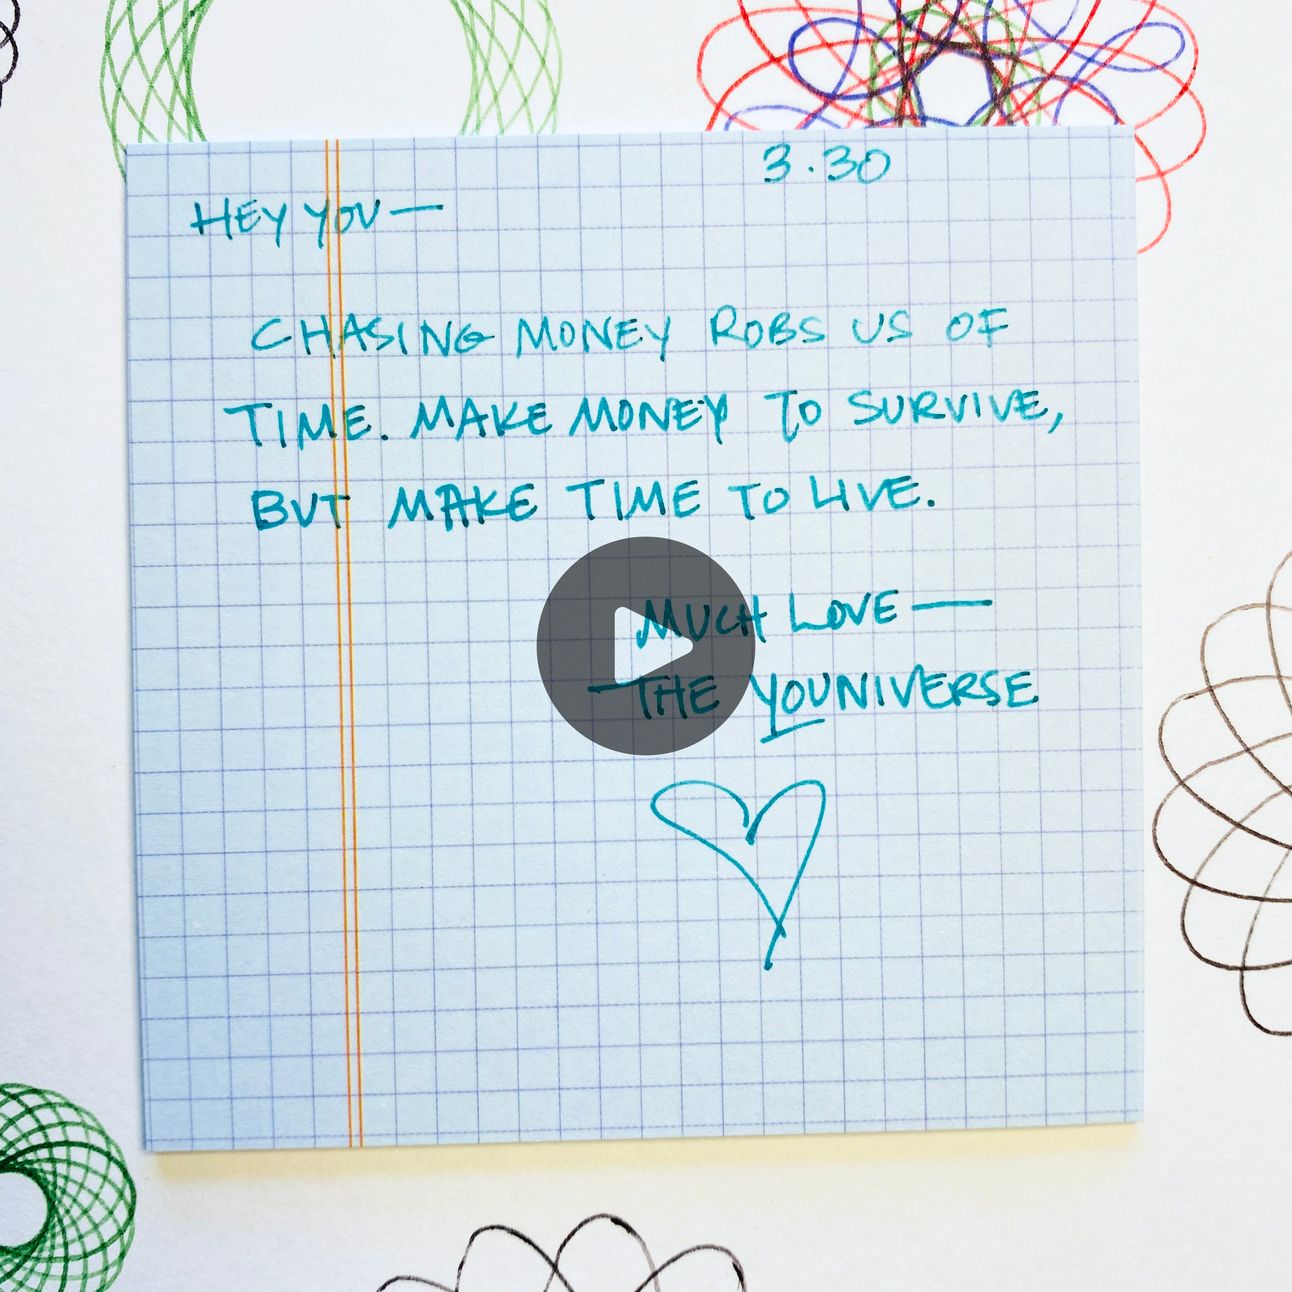 3.30
HEY YOU—
CHASING MONEY ROBS US OF
TIME. MAKE MONEY TO SURVIVE,
BUT MAKE TIME TO LIVE.
MUCH LOVE—
—THE YOUNIVERSE